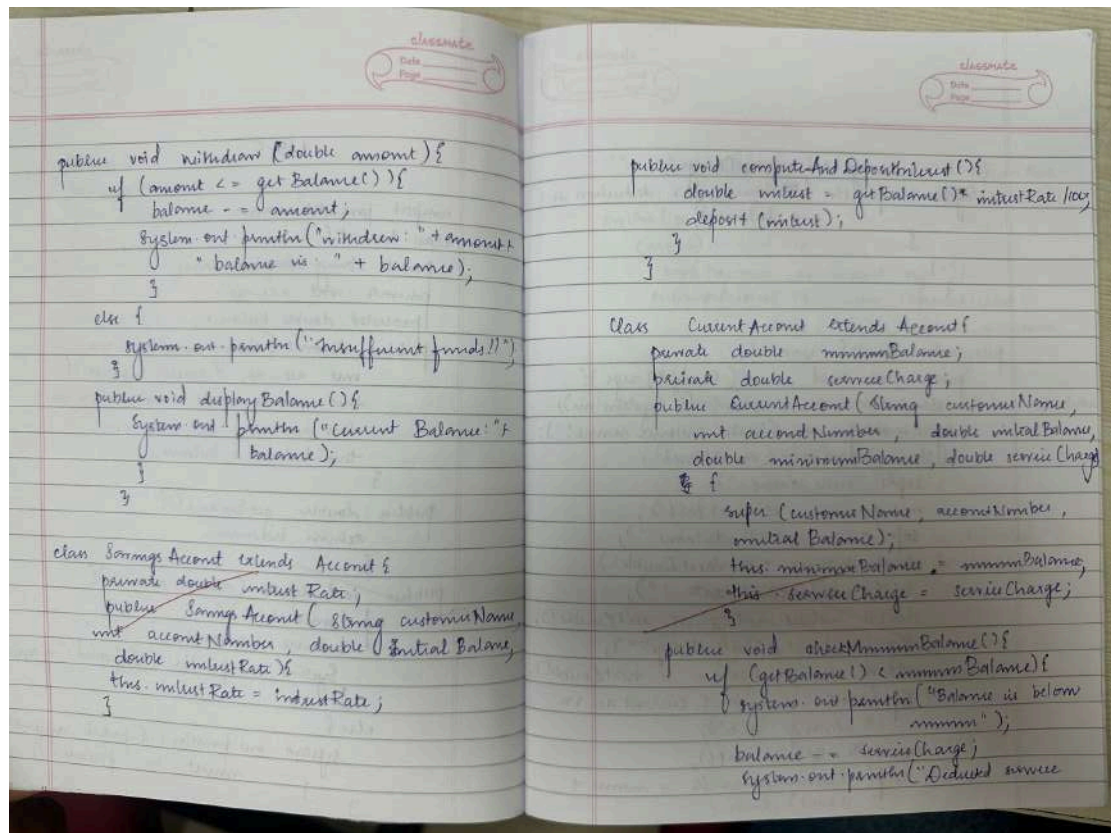 classmate
Date
Page
public void withdraw (double amount) {
if (amount <= get Balance() ) {
balance -= amount;
System.out.println("withdrew: " + amount +
" balance is: " + balance);
}
else {
system.out.println("Insufficient funds!!")
}}
public void displayBalance() {
System.out.println ("Current Balance:"+
balance);
}
}
class Savings Account extends Account {
private double interest Rate;
public Savings Account ( String customerName,
int account Number, double Initial Balance,
double interestRate ) {
this.interestRate = interestRate;
}
classmate
Date
Page
public void compute And DepositInterest () {
double interest = getBalance() * interestRate /100;
deposit (interest);
}
}
Class Current Account extends Account {
private double minimumBalance;
private double serviceCharge;
public CurrentAccount ( String customerName,
int accountNumber, double initialBalance,
double minimumBalance, double serviceCharge)
{
super (customerName, accountNumber,
initial Balance);
this.minimumBalance = minimumBalance;
this.serviceCharge = serviceCharge;
}
public void checkMinimumBalance() {
if (getBalance() < minimumBalance) {
system.out.println ("Balance is below
minimum");
balance -= serviceCharge;
system.out.println ("Deduced service